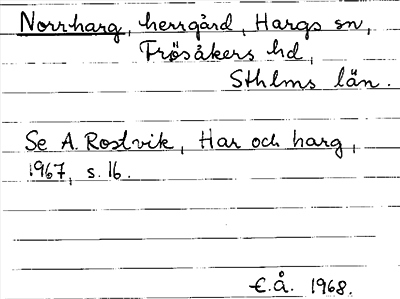 Norrharg, herrgård, Hargs sn,
Frösåkers hd,
Sthlms län.
Se A. Rostvik, Har och harg,
1967, s. 16.
E.Å. 1968.